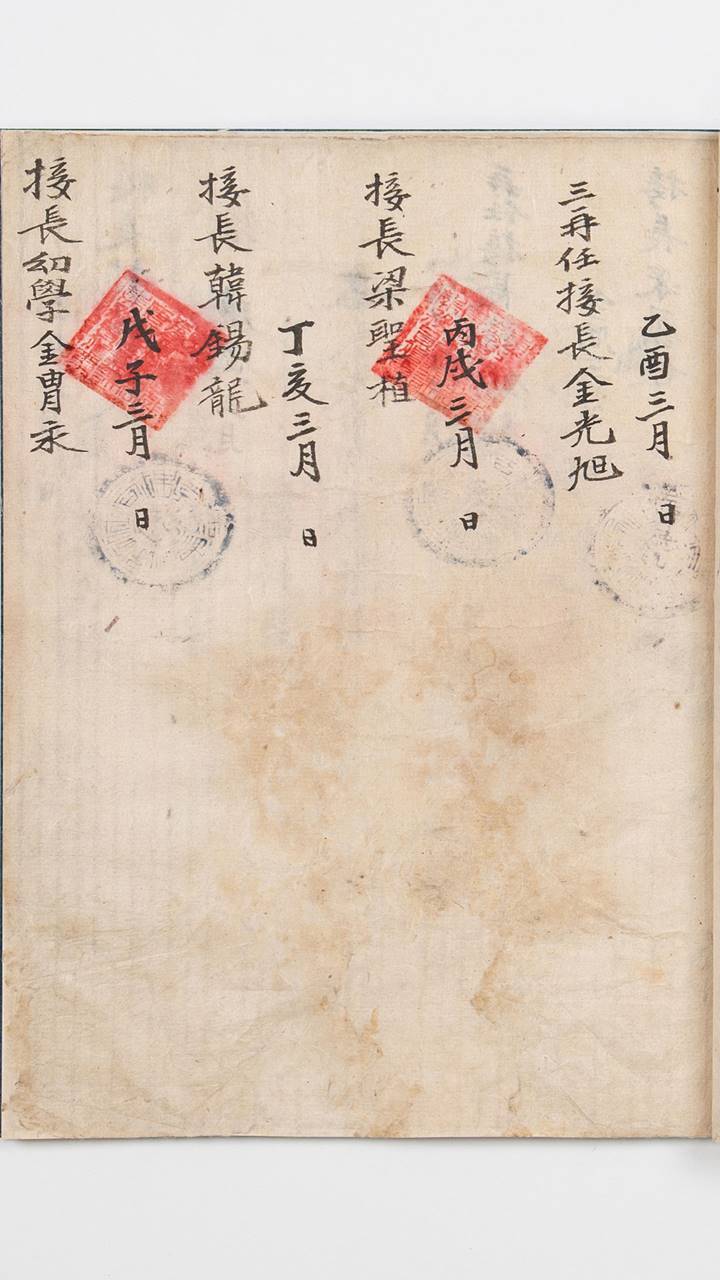 乙酉三月 日
三再任接長金光旭
丙戌三月 日
接長梁聖植
丁亥三月 日
接長韓錫龍
戊子三月 日
接長幼學金胄永